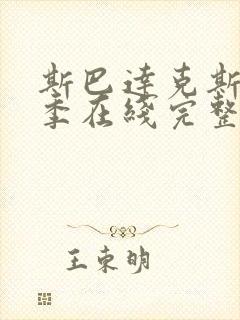 斯巴达克斯
季在线完整
王东明